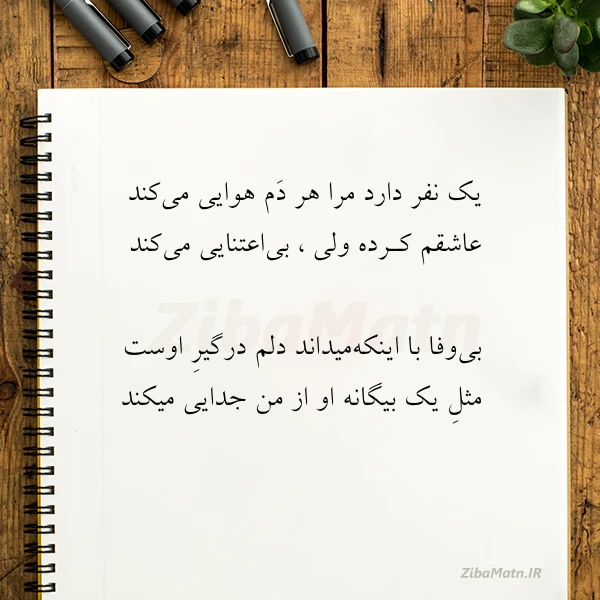 یک نفر دارد مرا هر دَم هوایی می‌کند
عاشقم کـرده ولی ، بی‌اعتنایی می‌کند
بی‌وفا با اینکه‌میداند دلم درگیرِ اوست
مثلِ یک بیگانه او از من جدایی میکند
ZibaMatn
ZibaMatn.IR